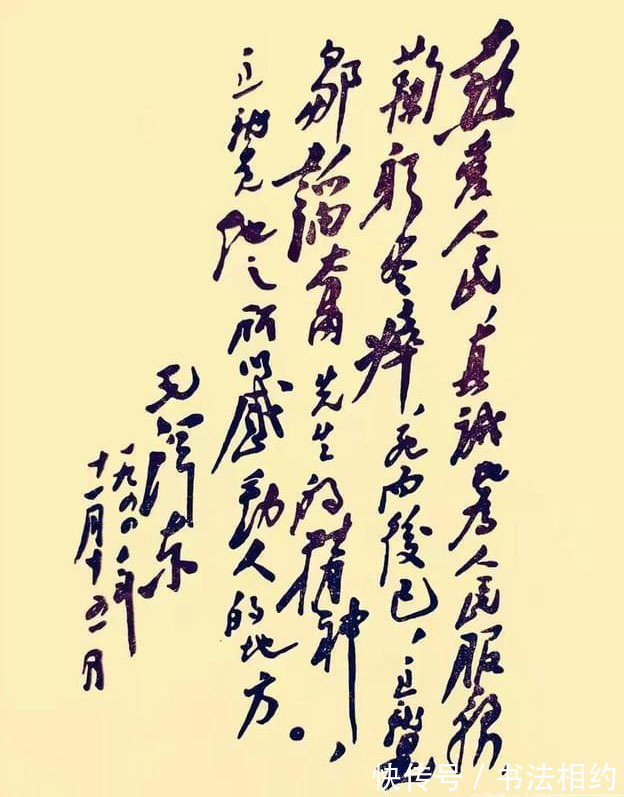 熱愛人民，真誠地為人民服務
鞠躬尽瘁，死而後已，这就是
鄒韜奮先生的精神，
这就是他之所以感動人的地方。
毛泽东
一九四四年
十一月十五日
快传号 / 书法相约